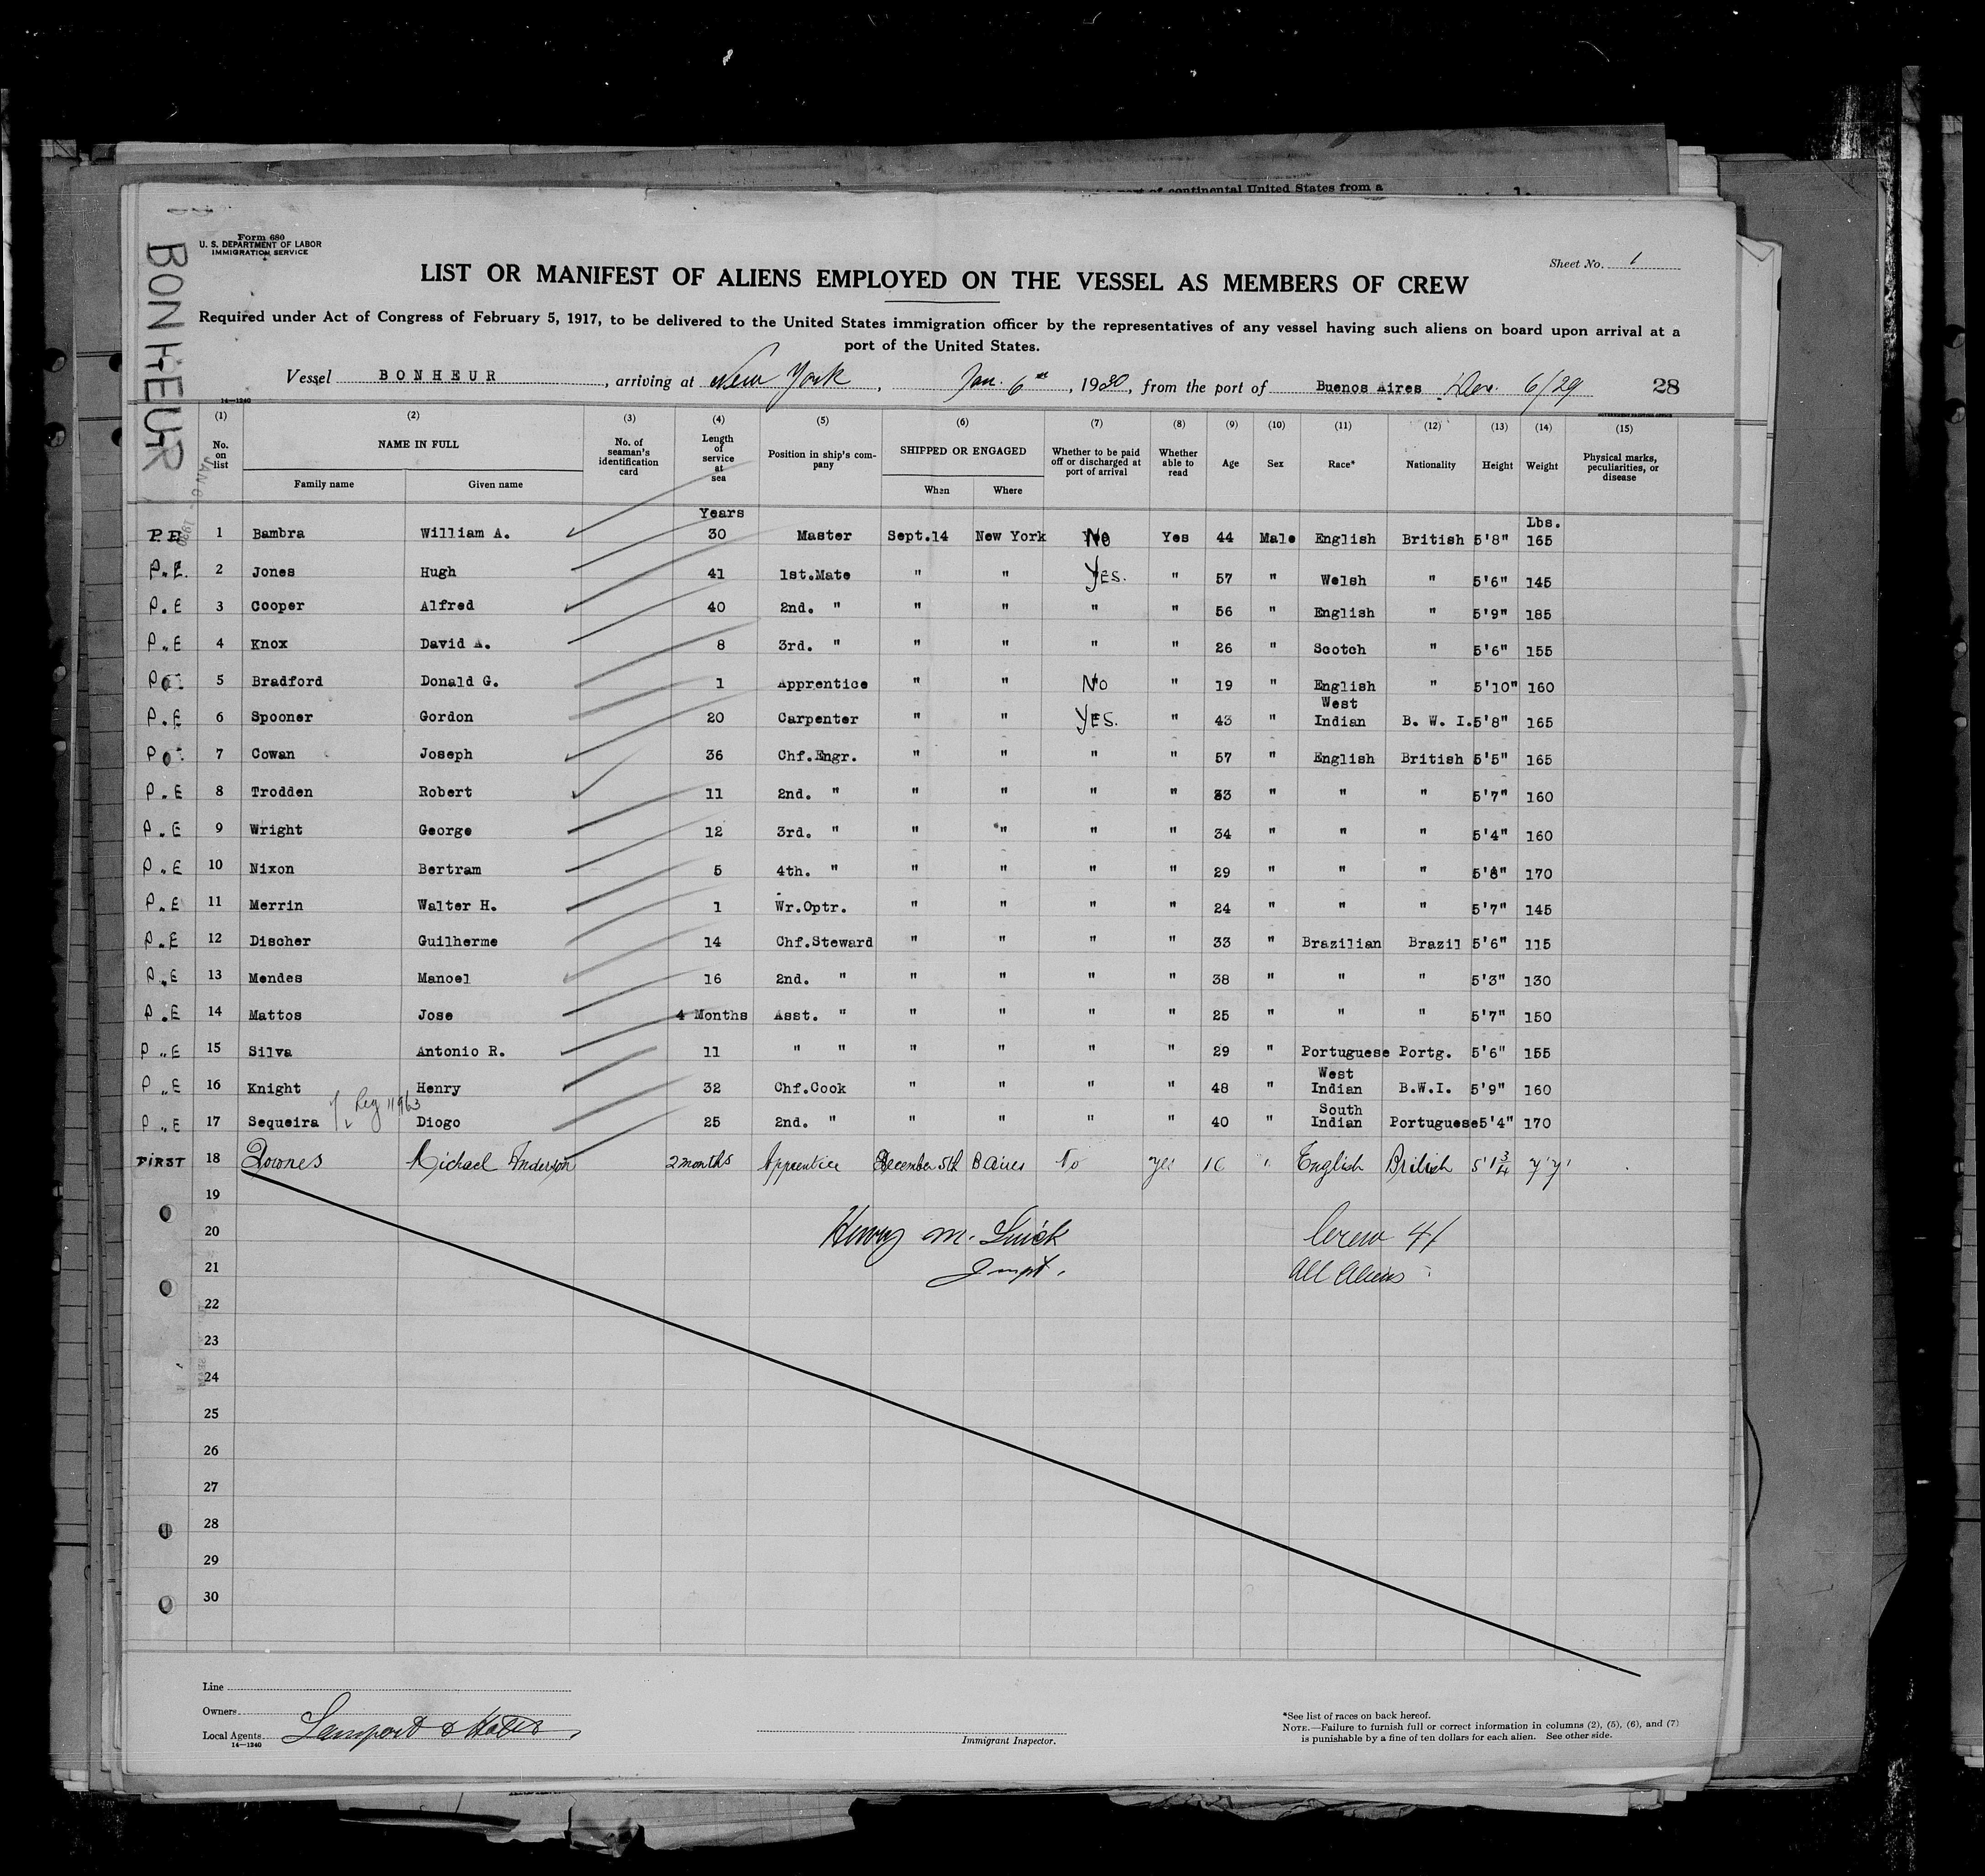 part of continental United States from a
Form 680
U. S. DEPARTMENT OF LABOR
IMMIGRATION SERVICE
BONHEUR
JAN 6 - 1930
Sheet No. 1
LIST OR MANIFEST OF ALIENS EMPLOYED ON THE VESSEL AS MEMBERS OF CREW
Required under Act of Congress of February 5, 1917, to be delivered to the United States immigration officer by the representatives of any vessel having such aliens on board upon arrival at a
port of the United States.
Vessel BONHEUR, arriving at New York, Jan. 6th, 1930, from the port of Buenos Aires Dec. 6/29 28
14—1240
GOVERNMENT PRINTING OFFICE
(1) (2) (3) (4) (5) (6) (7) (8) (9) (10) (11) (12) (13) (14) (15)
No. on list NAME IN FULL Family name Given name No. of seaman's identification card Length of service at sea Position in ship's company SHIPPED OR ENGAGED When Where Whether to be paid off or discharged at port of arrival Whether able to read Age Sex Race* Nationality Height Weight Physical marks, peculiarities, or disease
Years Lbs.
P.E 1 Bambra William A. 30 Master Sept.14 New York No Yes 44 Male English British 5'8" 165
P.E. 2 Jones Hugh 41 1st.Mate " " YES. " 57 " Welsh " 5'6" 145
P.E 3 Cooper Alfred 40 2nd. " " " " " 56 " English " 5'9" 185
P.E 4 Knox David A. 8 3rd. " " " " " 26 " Scotch " 5'6" 155
5 Bradford Donald G. 1 Apprentice " " No " 19 " English " 5'10" 160
P.E 6 Spooner Gordon 20 Carpenter " " YES. " 43 " West Indian B. W. I. 5'8" 165
7 Cowan Joseph 36 Chf.Engr. " " " " 57 " English British 5'5" 165
P.E 8 Trodden Robert 11 2nd. " " " " " 33 " " " 5'7" 160
P.E 9 Wright George 12 3rd. " " " " " 34 " " " 5'4" 160
P.E 10 Nixon Bertram 5 4th. " " " " " 29 " " " 5'8" 170
P.E 11 Merrin Walter H. 1 Wr.Optr. " " " " 24 " " " 5'7" 145
P.E 12 Discher Guilherme 14 Chf.Steward " " " " 33 " Brazilian Brazil 5'6" 115
P.E 13 Mendes Manoel 16 2nd. " " " " " 38 " " " 5'3" 130
P.E 14 Mattos Jose 4 Months Asst. " " " " " 25 " " " 5'7" 150
P.E 15 Silva Antonio R. 11 " " " " " " 29 " Portuguese Portg. 5'6" 155
P.E 16 Knight Henry 32 Chf.Cook " " " " 48 " West Indian B.W.I. 5'9" 160
Reg 11963
P.E 17 Sequeira Diogo 25 2nd. " " " " " 40 " South Indian Portuguese 5'4" 170
FIRST 18 Downes Michael Anderson 2 months Apprentice December 5th B Aires No yes 16 " English British 5'1 3/4
19
20 Crew 41
21 Inspt. All Aliens
22
23
24
25
26
27
28
29
30
Line
Owners
Local Agents Lamport & Holts
14—1240
Immigrant Inspector.
*See list of races on back hereof.
NOTE.—Failure to furnish full or correct information in columns (2), (5), (6), and (7)
is punishable by a fine of ten dollars for each alien. See other side.